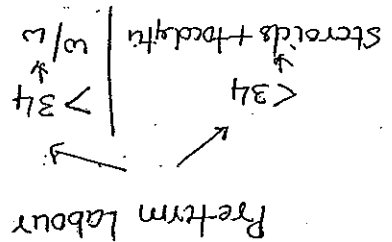 Preterm Labour
<34 >34
steroids + tocolytic w/w